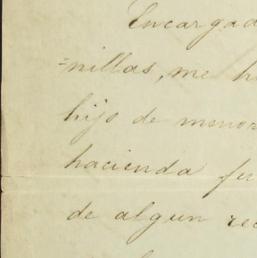 Encargad
=nillas, me h
hijo de menor
hacienda fu
de algun rec